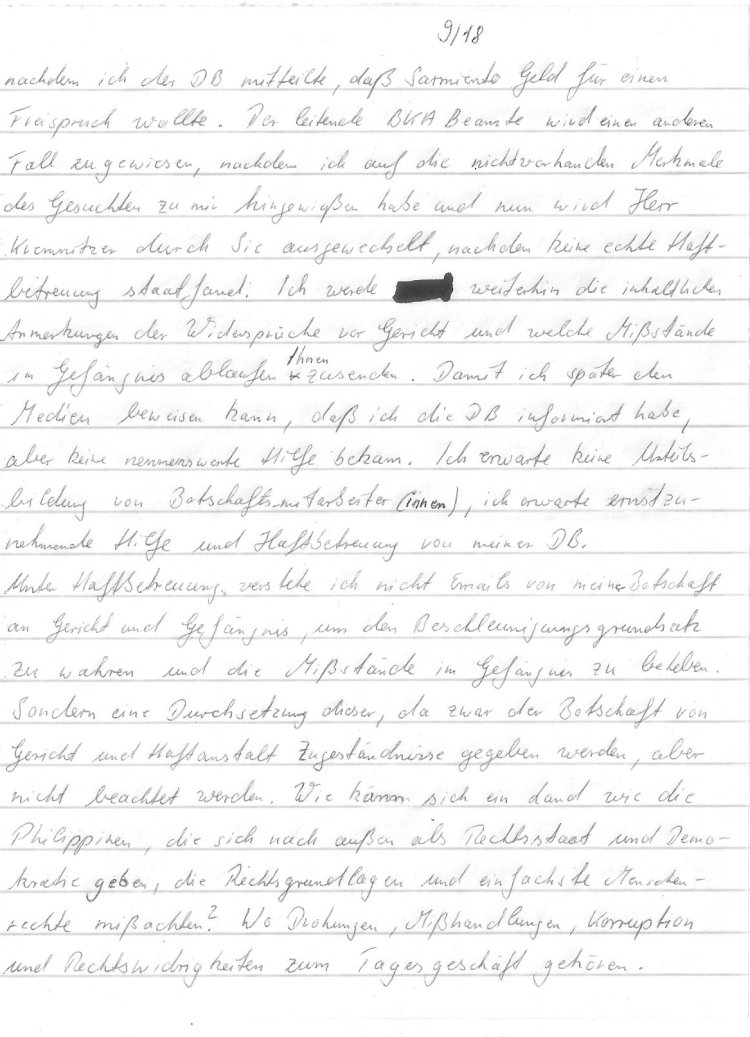 9/18
nachdem ich der DB mitteilte, daß Sarmiento Geld für einen
Freispruch wollte. Der leitende BKA Beamte wird einen anderen
Fall zugewiesen, nachdem ich auf die nichtvorhanden Merkmale
des Gesuchten zu mir hingewießen habe und nun wird Herr
durch Sie ausgewechselt, nachdem keine echte Haft-
betreuung staatfand. Ich werde weiterhin die inhaltlichen
Anmerkungen der Widersprüche vor Gericht und welche Mißstände
im Gefängnis ablaufen Ihnen zusenden. Damit ich später den
Medien beweisen kann, daß ich die DB informiert habe,
aber keine nennenswerte Hilfe bekam. Ich erwarte keine Urteils-
bildung von Botschaftsmitarbeiter (innen), ich erwarte ernstzu-
nehmende Hilfe und Haftbetreuung von meiner DB.
Unter Haftbetreuung verstehe ich nicht Emails von meiner Botschaft
an Gericht und Gefängnis, um den Beschleunigungsgrundsatz
zu wahren und die Mißstände im Gefängnis zu beheben.
Sondern eine Durchsetzung dieser, da zwar der Botschaft von
Gericht und Haftanstalt Zugeständnisse gegeben werden, aber
nicht beachtet werden. Wie kann sich ein Land wie die
Philippinen, die sich nach außen als Rechtsstaat und Demo-
kratie geben, die Rechtsgrundlagen und einfachste Menschen-
rechte mißachten? Wo Drohungen, Mißhandlungen, Korruption
und Rechtswidrigkeiten zum Tagesgeschäft gehören.